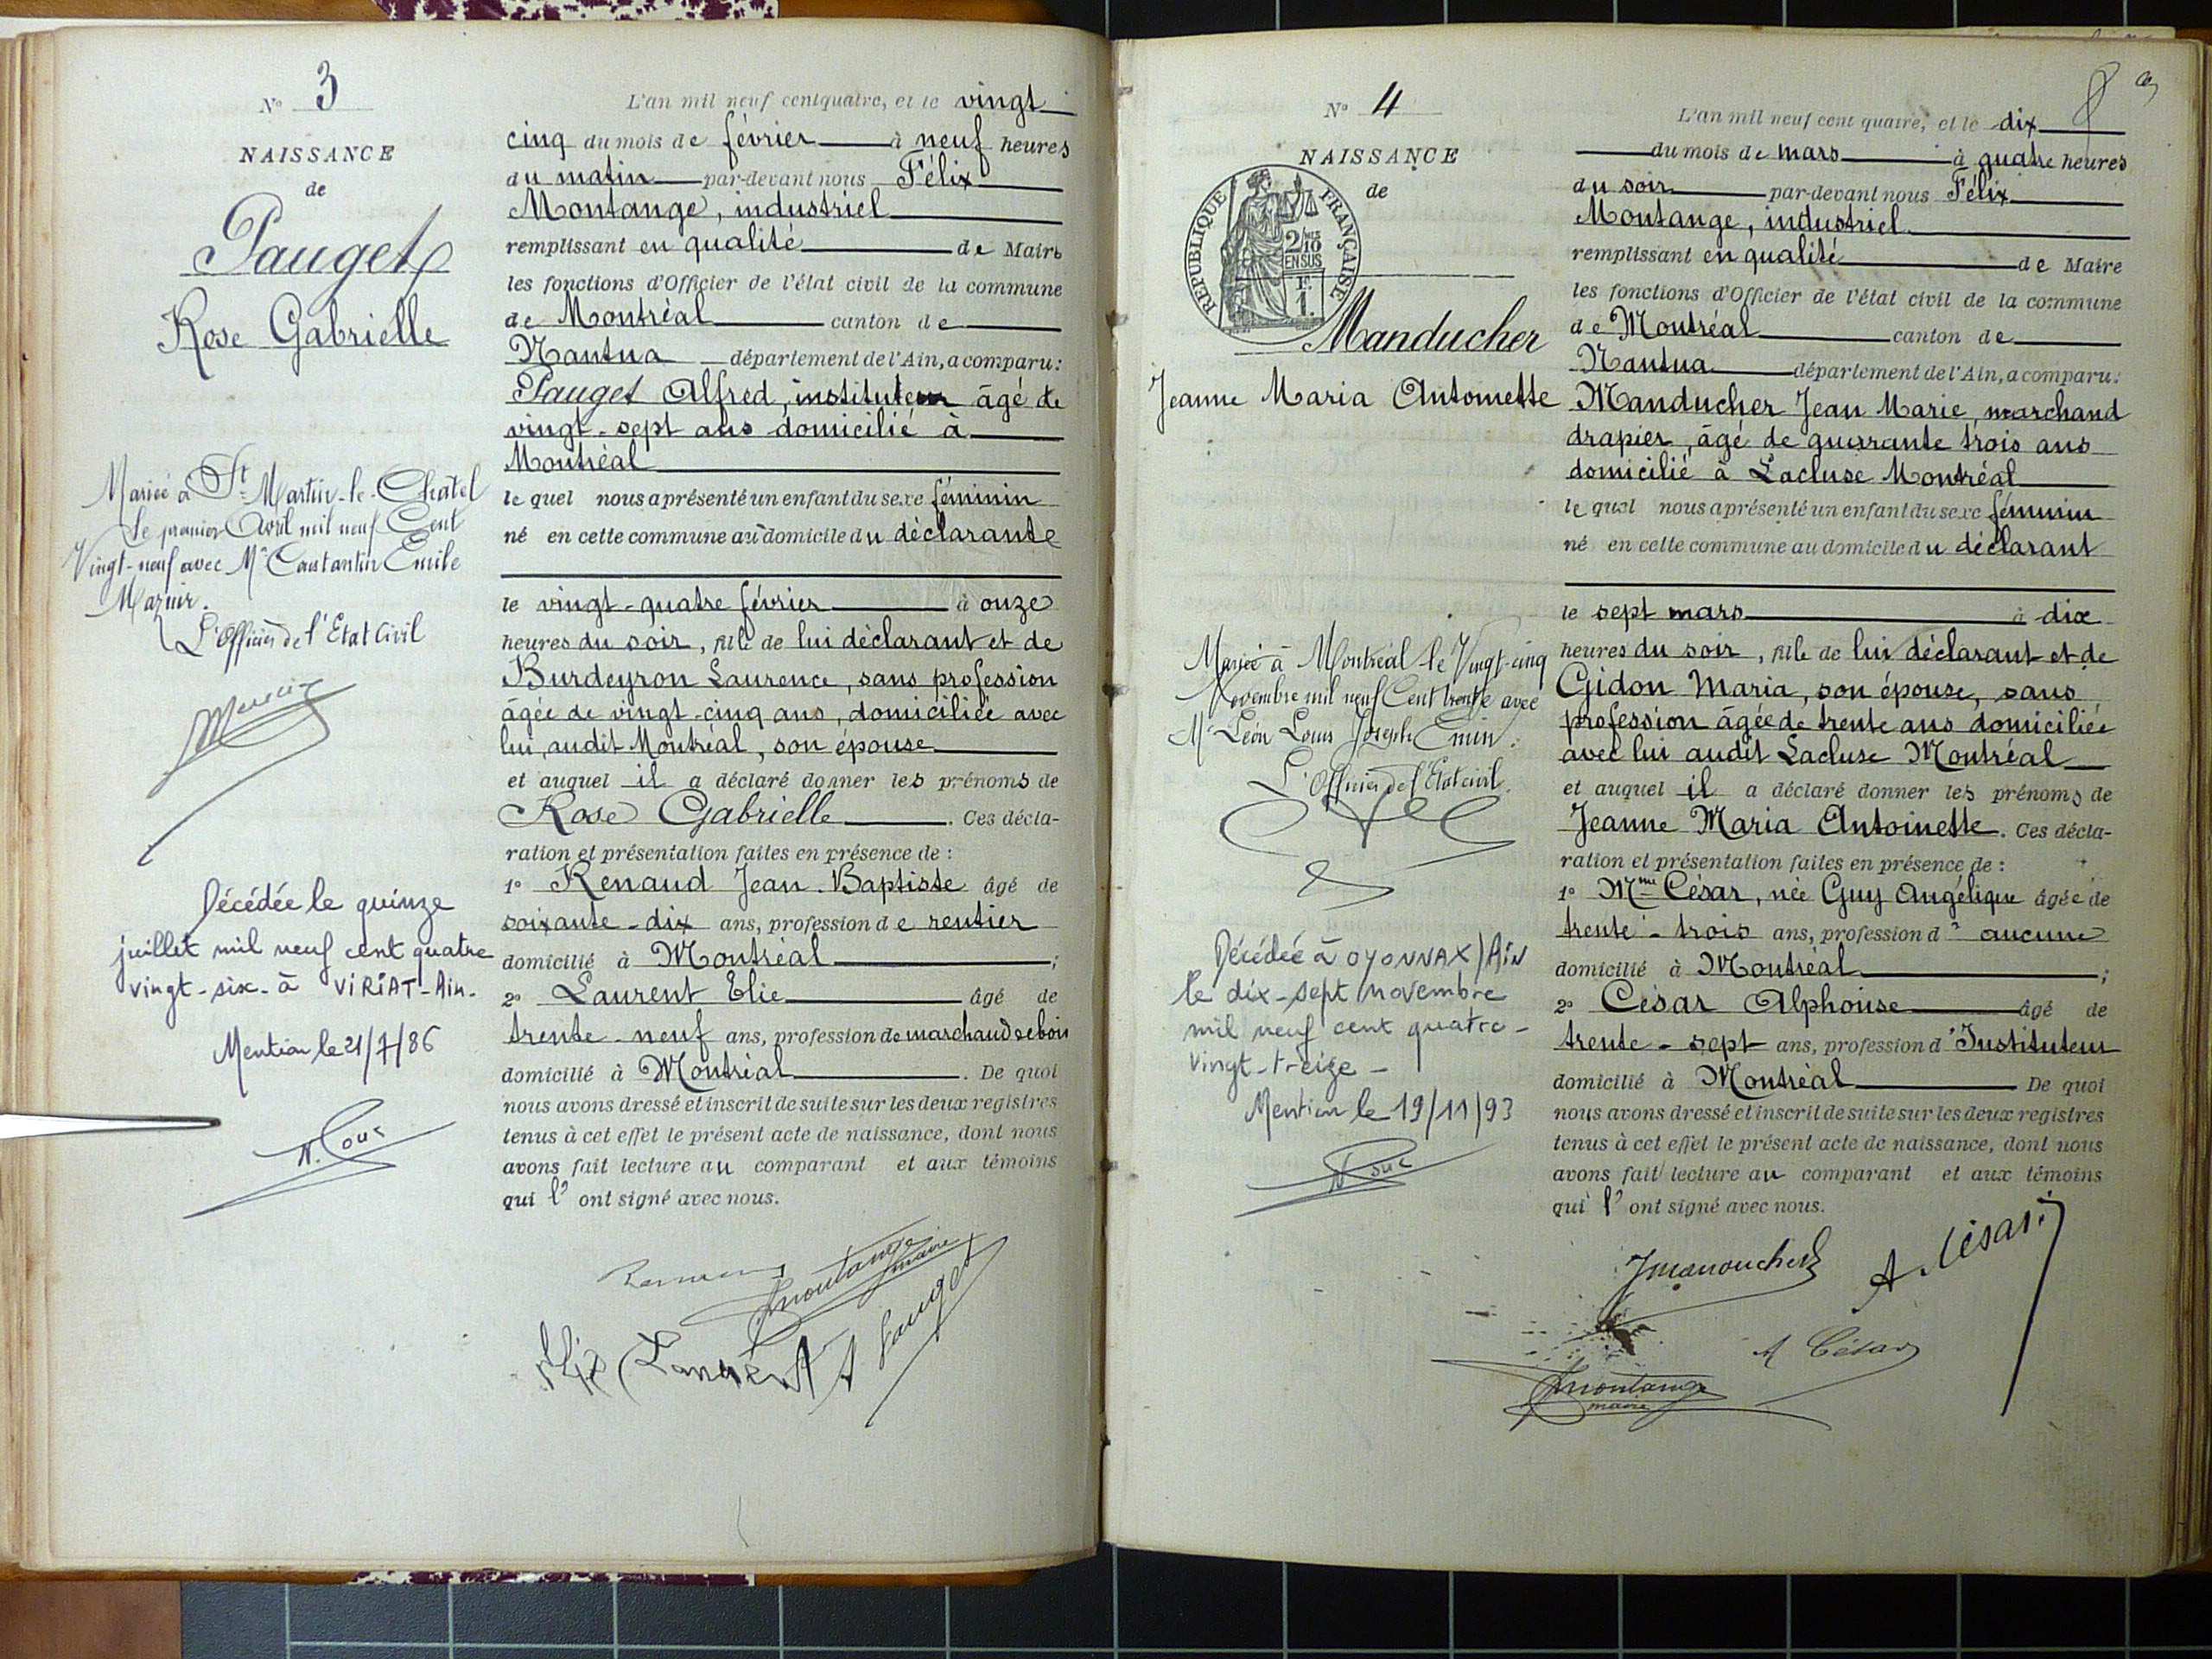 N° 3
NAISSANCE
de
Pauget
Rose Gabrielle
Mariée à St Martin-le-Chatel
le premier Avril mil neuf Cent
Vingt-neuf avec Mr Constantin Emile
L'Officier de l'Etat Civil
Décédée le quinze
juillet mil neuf cent quatre
vingt-six - à VIRIAT - Ain.
Mention le 21/7/86
L'an mil neuf cent quatre, et le vingt
cinq du mois de février à neuf heures
du matin par-devant nous Félix
Montange, industriel
remplissant en qualité de Maire
les fonctions d'Officier de l'état civil de la commune
de Montréal canton de
Nantua département de l'Ain, a comparu :
Pauget Alfred, instituteur âgé de
vingt-sept ans domicilié à
Montréal
lequel nous a présenté un enfant du sexe féminin
né en cette commune au domicile du déclarante
le vingt-quatre février à onze
heures du soir, fille de lui déclarant et de
Burdeyron Laurence, sans profession
âgée de vingt-cinq ans, domiciliée avec
lui, audit Montréal, son épouse
et auquel il a déclaré donner les prénoms de
Rose Gabrielle. Ces décla-
ration et présentation faites en présence de :
1° Renaud Jean-Baptiste âgé de
soixante-dix ans, profession de rentier
domicilié à Montréal ;
2° Laurent Elie âgé de
trente-neuf ans, profession de marchand de bois
domicilié à Montréal. De quoi
nous avons dressé et inscrit de suite sur les deux registres
tenus à cet effet le présent acte de naissance, dont nous
avons fait lecture au comparant et aux témoins
qui l' ont signé avec nous.
Montange
maire
Laurent A Pauget
8
N° 4
NAISSANCE
de
RÉPUBLIQUE FRANÇAISE
2/10
EN SUS
1 F.
Manducher
Jeanne Maria Antoinette
Mariée à Montréal le Vingt-cinq
Novembre mil neuf Cent trente avec
Mr Léon Louis Joseph Emin.
L'Officier de l'Etat civil.
Décédée à OYONNAX / AIN
le dix-sept novembre
mil neuf cent quatre-
vingt-treize -
Mention le 19/11/93
L'an mil neuf cent quatre, et le dix
du mois de mars à quatre heures
du soir par-devant nous Félix
Montange, industriel
remplissant en qualité de Maire
les fonctions d'Officier de l'état civil de la commune
de Montréal canton de
Nantua département de l'Ain, a comparu :
Manducher Jean Marie, marchand
drapier, âgé de quarante trois ans
domicilié à Lacluse Montréal
lequel nous a présenté un enfant du sexe féminin
né en cette commune au domicile du déclarant
le sept mars à dix
heures du soir, fille de lui déclarant et de
Gidon Maria, son épouse, sans
profession âgée de trente ans domiciliée
avec lui audit Lacluse Montréal
et auquel il a déclaré donner les prénoms de
Jeanne Maria Antoinette. Ces décla-
ration et présentation faites en présence de :
1° Mme César, née Guy Angélique âgée de
trente-trois ans, profession d' aucune
domicilié à Montréal ;
2° César Alphonse âgé de
trente-sept ans, profession d'Instituteur
domicilié à Montréal De quoi
nous avons dressé et inscrit de suite sur les deux registres
tenus à cet effet le présent acte de naissance, dont nous
avons fait lecture au comparant et aux témoins
qui l' ont signé avec nous.
A. César
A César
Montange
maire